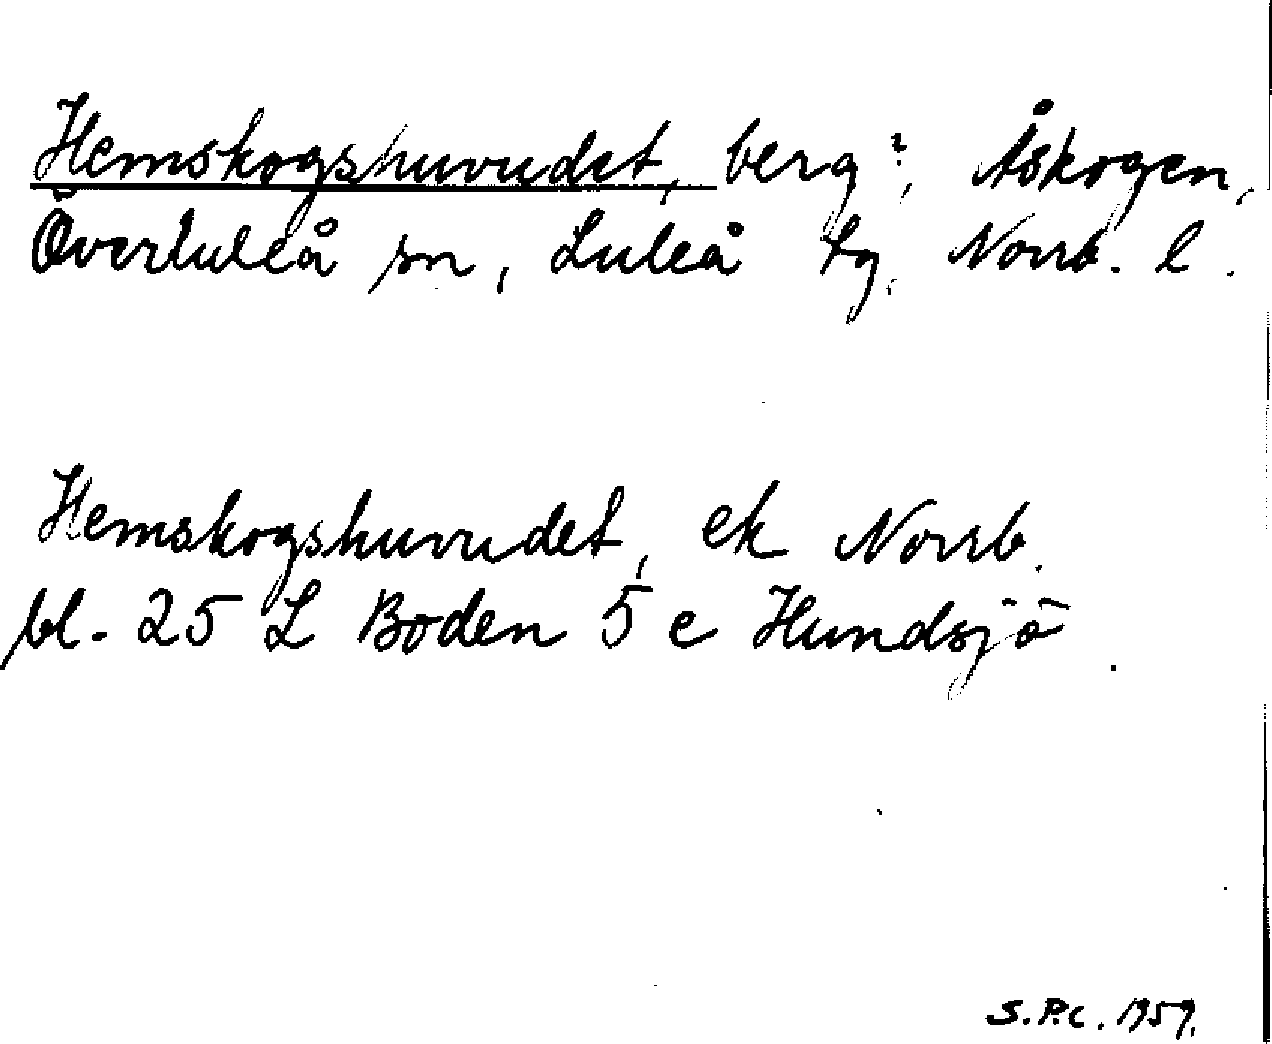 Hemskogshuvudet, berg?, Åskogen,
Överluleå sn, Luleå tg, Norrb. l.
Hemskogshuvudet, ek Norrb.
bl. 25 L Boden 5 c Hundsjö.
S.P.C. 1959.